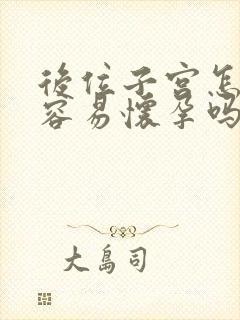 後位子宫怎
容易懷孕吗
大島司